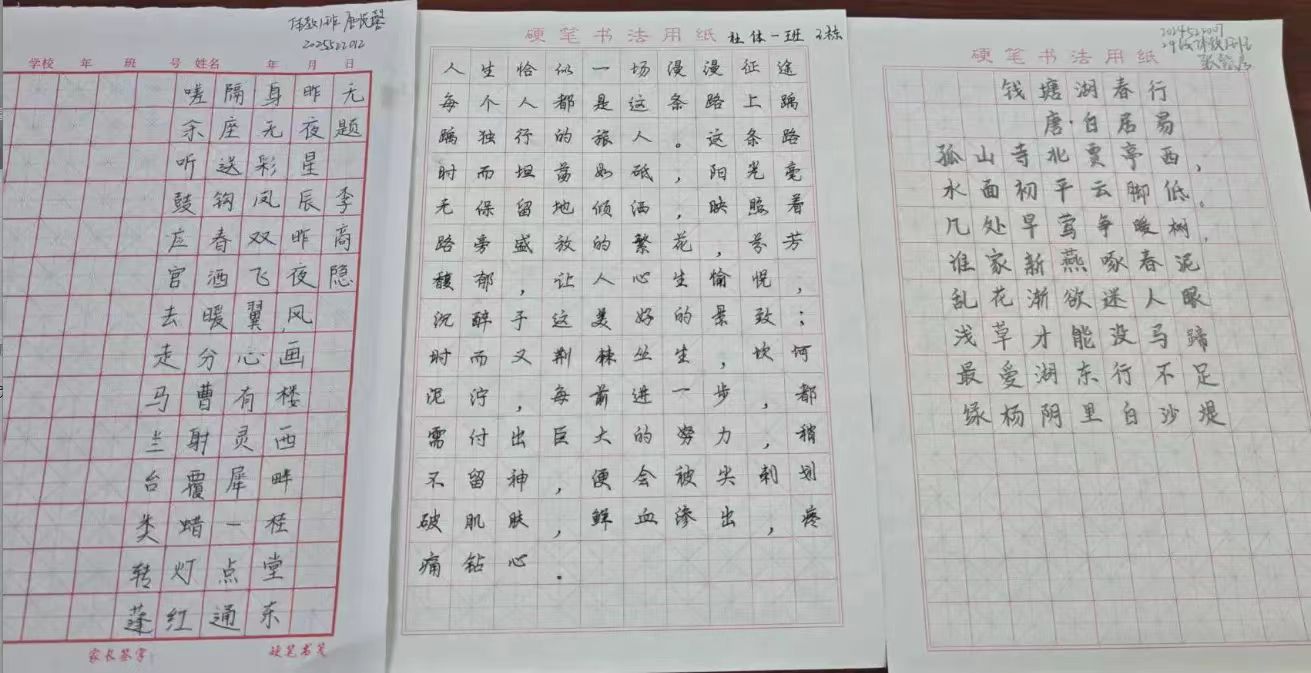 2025522012
学校 年 班 号 姓名 年 月 日
无题 李商隐
昨夜星辰昨夜风画楼西畔桂堂东
身无彩凤双飞翼,心有灵犀一点通
隔座送钩春酒暖分曹射覆蜡灯红
嗟余听鼓应官去走马兰台类转蓬
家长签字
硬笔书法用纸 社体一班
人生恰似一场漫漫征途
每个人都是这条路上踽
踽独行的旅人。这条路
时而坦荡如砥，阳光毫
无保留地倾洒，映照着
路旁盛放的繁花，芬芳
馥郁，让人心生愉悦，
沉醉于这美好的景致；
时而又荆棘丛生，坎何
泥泞，每前进一步，都
需付出巨大的努力，稍
不留神，便会被尖刺划
破肌肤，鲜血渗出，疼
痛钻心。
硬笔书法用纸
钱塘湖春行
唐·白居易
孤山寺北贾亭西，
水面初平云脚低。
几处早莺争暖树，
谁家新燕啄春泥
乱花渐欲迷人眼
浅草才能没马蹄
最爱湖东行不足
绿杨阴里白沙堤